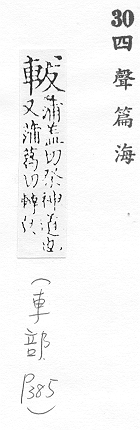 30四聲篇海
軷
蒲盖切祭神道也
又蒲葛切轉
(車部P385)